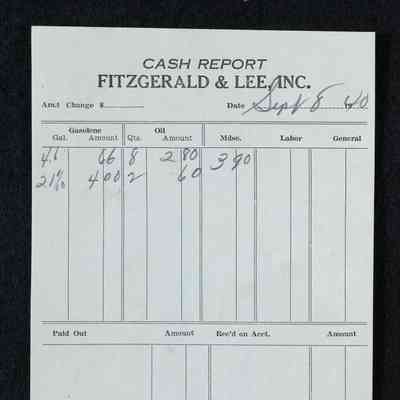 CASH REPORT
FITZGERALD & LEE, INC.
Am.t Change $ Date Sept 8 40
Gasolene Oil
Gal. Amount Qts. Amount Mdse. Labor General
66 8 2 80 3 90
4 00 2 60
Paid Out Amount Rec'd on Acct. Amount